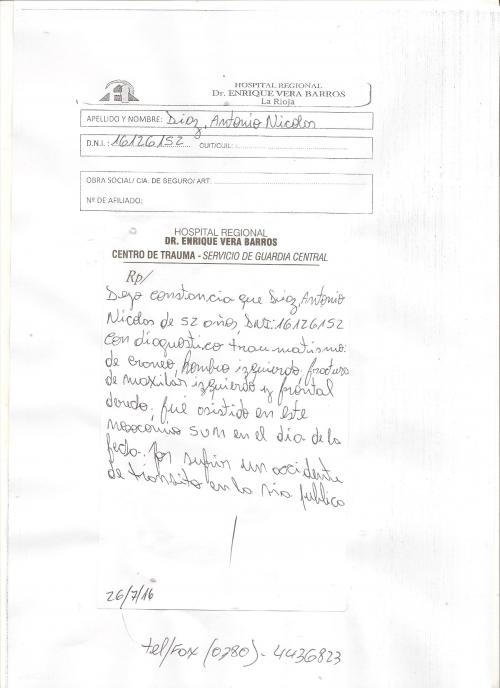 HOSPITAL REGIONAL
Dr. ENRIQUE VERA BARROS
La Rioja
APELLIDO Y NOMBRE: Diaz, Antonio Nicolas
D.N.I.: 16126152 CUIT/CUIL:
OBRA SOCIAL/ CIA. DE SEGURO/ ART:
Nº DE AFILIADO:
HOSPITAL REGIONAL
DR. ENRIQUE VERA BARROS
CENTRO DE TRAUMA - SERVICIO DE GUARDIA CENTRAL
Rp/
Dejo constancia que Diaz, Antonio
Nicolas de 52 años, DNI: 16126152
con diagnostico traumatismo:
de craneo, hombro izquierdo, fractura
de maxilar izquierdo y frontal
derecho, fué asistido en este
nosocomio en el dia de la
fecha. por sufrir un accidente
de transito en la via publica
26/7/16
tel/Fax (0380)-4436823